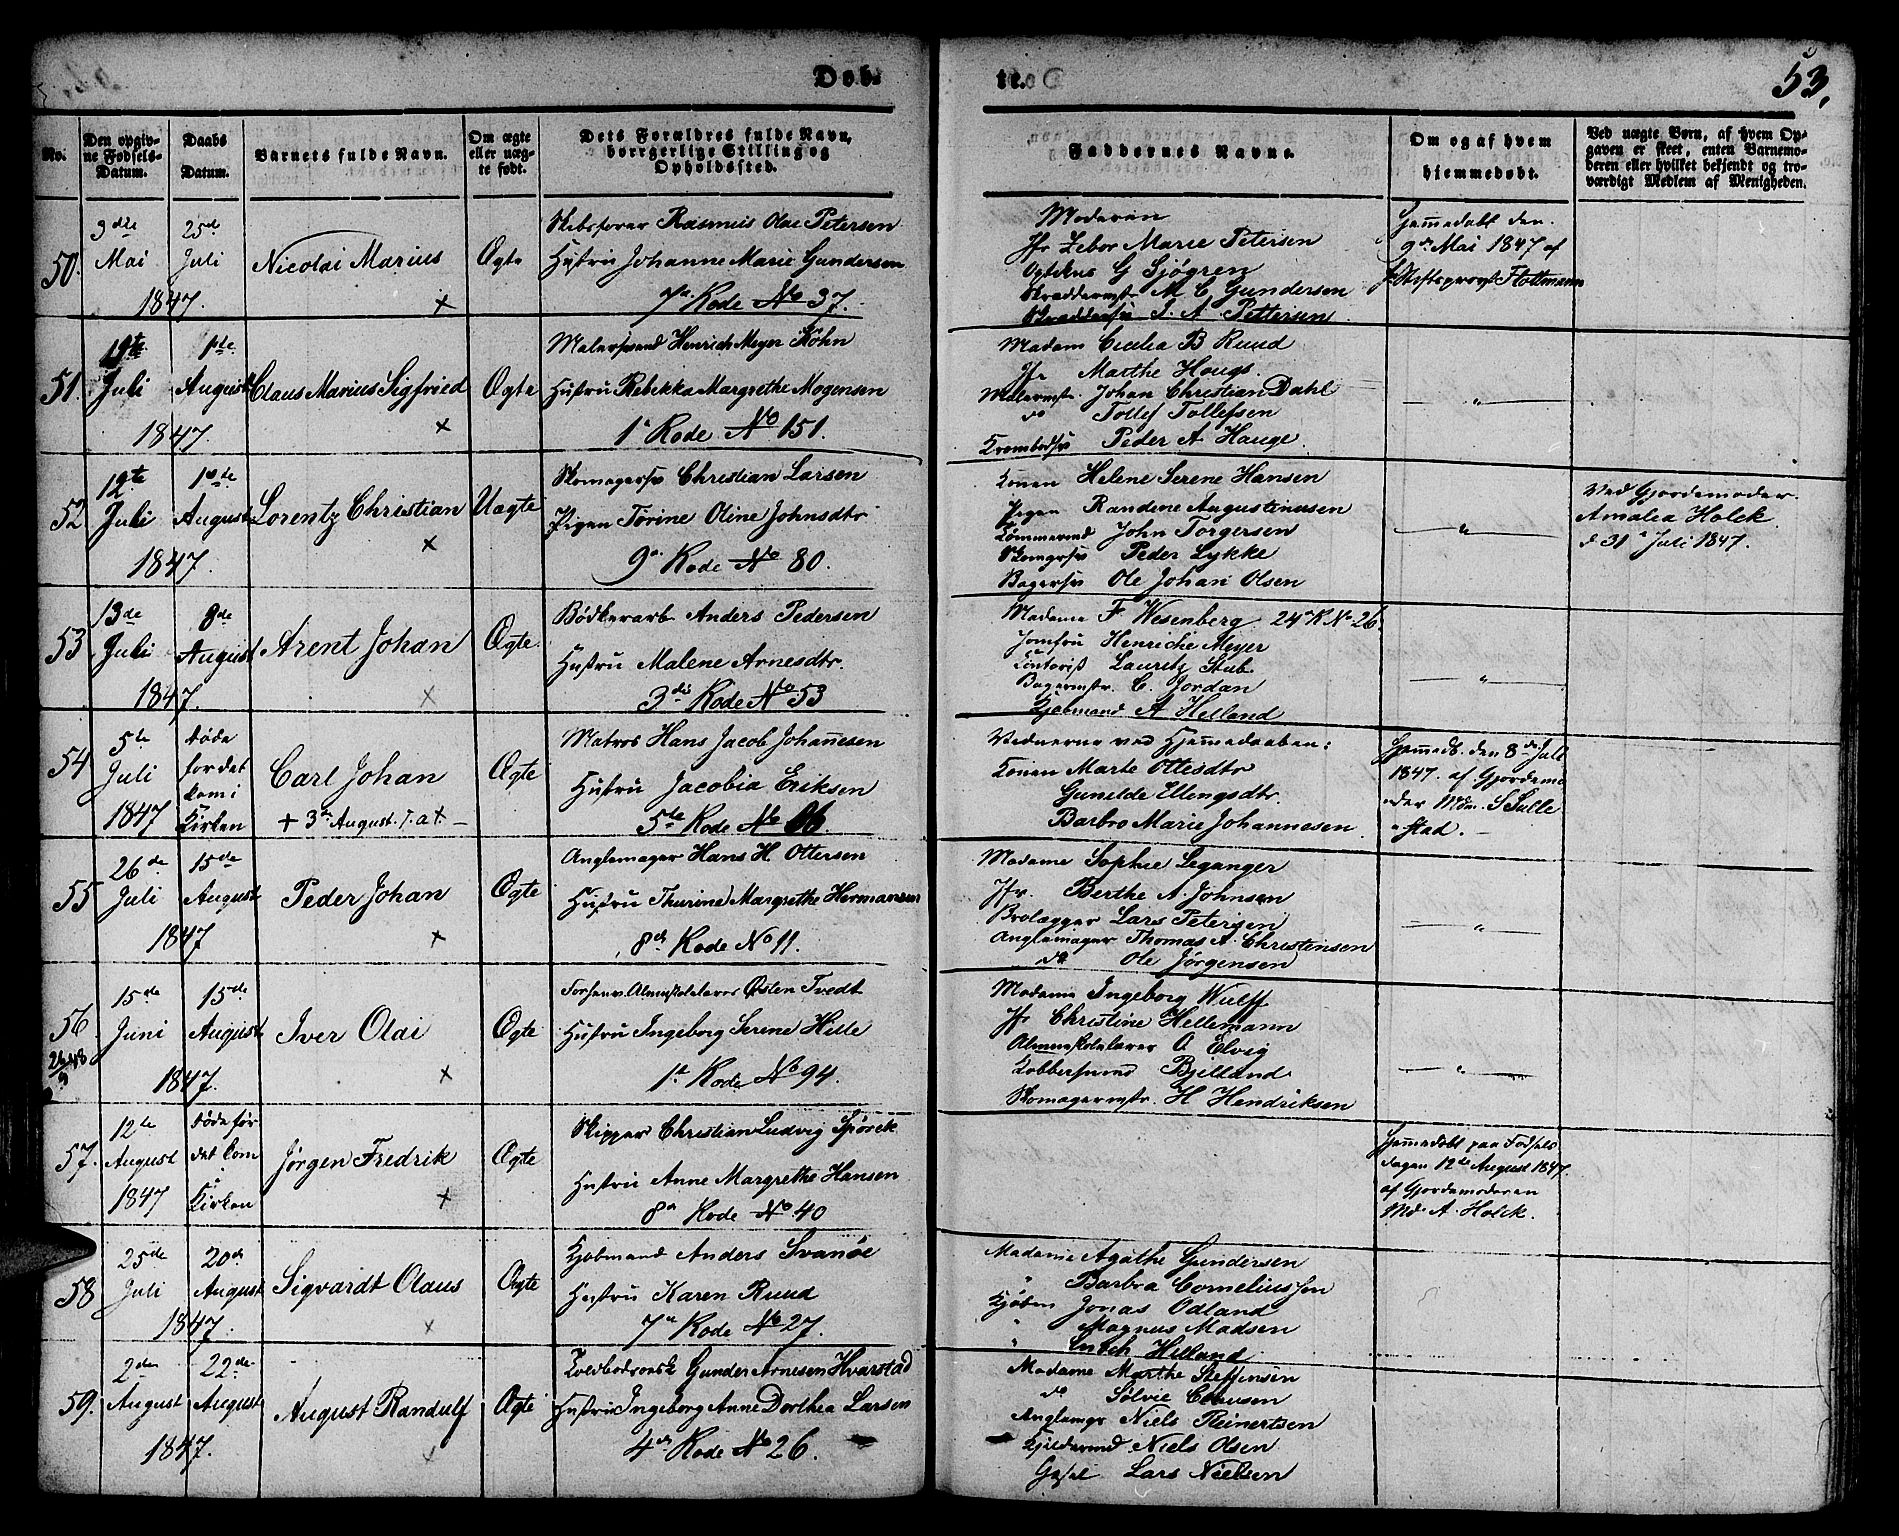 Døb-
te.
53,
No.
Den opgiv-
ne Fødsels-
Datum.
Daabs
Datum.
Barnets fulde Navn.
Om ægte
eller uæg-
te født.
Dets Forældres fulde Navn,
borgerlige Stilling og
Opholdssted.
Faddernes Navne.
Om og af hvem
hjemmedøbt.
Ved uægte Børn, af hvem Op-
gaven er skeet, enten Barnemo-
deren eller hvilket bekjendt og tro-
værdigt Medlem af Menigheden.
50.
9de
Mai
1847.
25d
Juli
Nicolai Marius
+
Ægte
Skibsfører Rasmus Olai Petersen
Hustru Johanne Marie Gundersen
7de Rode No 37.
Moderen
Jfr Zebor Marie Petersen
G Sjøgren
Skræddermstr M C Gundersen
Skræddersv I. A Pettersen
Hjemmedøbt den
9de Mai 1847 af
Stiftsprovst Flottmann
51.
Juli
1847.
1ste
August
Claus Marius Sigfried
+
Ægte
Malersvend Henrich Meyer Köhn
Hustru Rebekka Margrethe Mogensen
1e Rode No 151.
Madam Cecilia B Ruud
Jfr Marthe Hougs.
Malermstr. Johan Christian Dahl
do Tollef Tollefsen
Krambodsv Peder A Hauge.
— " —
52
12te
Juli
1847.
1ste
August
Lorentz Christian
+
Uægte
Skomagersv Christian Larsen
Pigen Torine Oline Johnsdtr
9e Rode No 80.
Konen Helene Serene Hansen
Pigen Randene Augustinusen
Tømmermd John Torgersen
Skomgrsv Peder Lykke
Bagersv Ole Johan Olsen
— " —
Ved Gjordemoder
Amalea Holck
d 31e Juli 1847.
53
13de
Juli
1847.
8de
August
Arent Johan
+
Ægte.
Bødkerarb Anders Pedersen
Hustru Malene Arnesdtr.
3die Rode No 53
Madame F Wesenberg 24de R No 26.
Jomfru Henriche Meyer
Kontorist Lauritz Stub
Bagermstr. C. Jordan
Kjøbmand A Helland
— " —
54
5te
Juli
1847
døde
før det
kom i
Kirken
Carl Johan
+ 3de August. T. at. —
Ægte
Matros Hans Jacob Johannesen
Hustru Jacobia Eriksen
5te Rode No 66
Vidnerne ved Hjemmedaaben:
Konen Marte Ottesdtr
Gunilde Ellengsdtr.
Barbro Marie Johannesen
Hjemmedb. den 8de Juli
1847. af Gjordemo
der Mdm. S Sulle
stad. —
55
26de
Juli
1847
15de
August
Peder Johan
+
Ægte
Anglemager Hans H. Ottersen
Hustru Thurine Margrethe Hermansen
8de Rode No 11.
Madame Sophie Leganger
Jfr. Berthe A. Johnsen
Brolægger Lars Petersen
Anglemager Thomas A. Christensen
do Ole Jørgensen
— " —
56
15de
Juni
1847.
15de
August
Iver Olai
+
Ægte
Almueskolelærer Østen Tvedt
Hustru Ingeborg Serene Hille
1te Rode No 94.
Madame Ingeborg Wulff
Jfr Christine Hellemann
Almueskolelærer O Elvig
Kobbersmed Bjelland
Skomagermstr. H Hendriksen
— " —
57.
12te
August
1847
døde før
det kom
i
Kirken
Jørgen Fredrik
+
Ægte
Skipper Christian Ludvig Spørck
Hustru Anne Margrethe Hansen
8de Rode No 40
Hjemmedøbt paa Fødsels
dagen 12te August 1847.
af Gjordemoderen
Md. A. Holck.
58
25de
Juli
1847.
20de
August
Sigvardt Olaus
+
Ægte
Kjøbmand Anders Svanøe
Hustru Karen Ruud
7de Rode No 27.
Madame Agathe Gundersen
" Barbra Corneliussen
Kjøbm Jonas Odland
" Magnus Madsen
" Helland
59.
2den
August
1847.
22de
August
August Randulf
+
Ægte
Gunder Arnesen Hvarstad
Hustru Ingeborg Anne Dorthea Larsen
4de Rode No 26.
Madame Marthe Steffensen
do Sølvie Clausen
Anglemgr Niels Reinertsen
Niels Olsen
Lars Nielsen